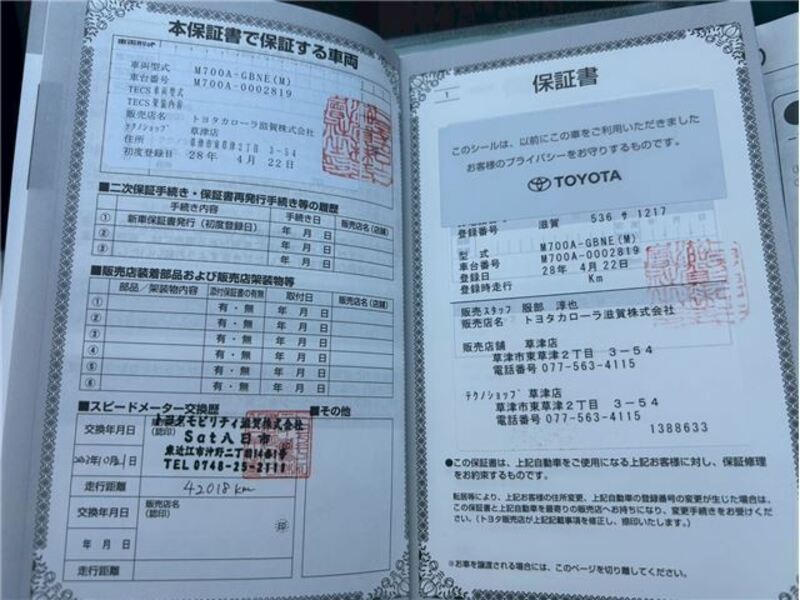 本保証書で保証する車両
車両形式
車両型式 M700A-GBNE(M)
車台番号 M700A-0002819
TECS車両型式
TECS架装内容
販売店名 トヨタカローラ滋賀株式会社
テクノショップ 草津店
住所 草津市東草津2丁目 3-54
初度登録日 28年 4月22日
■二次保証手続き・保証書再発行手続き等の履歴
手続き内容 手続き日 販売店名(店舗)
① 新車保証書発行(初度登録日) 年 月 日
② 年 月 日
③ 年 月 日
■販売店装着部品および販売店架装物等
部品/架装物内容 添付保証書の有無 取付日 販売店名(店舗)
① 有・無 年 月 日
② 有・無 年 月 日
③ 有・無 年 月 日
④ 有・無 年 月 日
⑤ 有・無 年 月 日
⑥ 有・無 年 月 日
■スピードメーター交換歴 ■その他
交換年月日
(認印)
トヨタモビリティ滋賀株式会社
Sat八日市
東近江市沖野二丁目14番1号
TEL 0748-25-2111
走行距離 42018km
交換年月日 販売店名
(認印)
印
年 月 日
走行距離
1
保証書
このシールは、以前にこの車をご利用いただきました
お客様のプライバシーをお守りするものです。
TOYOTA
登録番号 滋賀 536 サ 1217
型式 M700A-GBNE(M)
車台番号 M700A-0002819
登録年月日 28年 4月22日
登録時走行 Km
販売スタッフ 服部 淳也
販売店名 トヨタカローラ滋賀株式会社
販売店舗 草津店
草津市東草津2丁目 3-54
電話番号 077-563-4115
テクノショップ 草津店
草津市東草津2丁目 3-54
電話番号 077-563-4115
1388633
●この保証書は、上記自動車をご使用になる上記お客様に対し、保証修理
をお約束するものです。
転居等により、上記お客様の住所変更、上記自動車の登録番号の変更が生じた場合は、
この保証書と上記自動車を最寄りの販売店へお持ちになり、変更手続きをお受けくだ
さい。(トヨタ販売店が上記記載事項を修正し、捺印いたします。)
※お車を譲渡される場合には、このページを切り離してください。